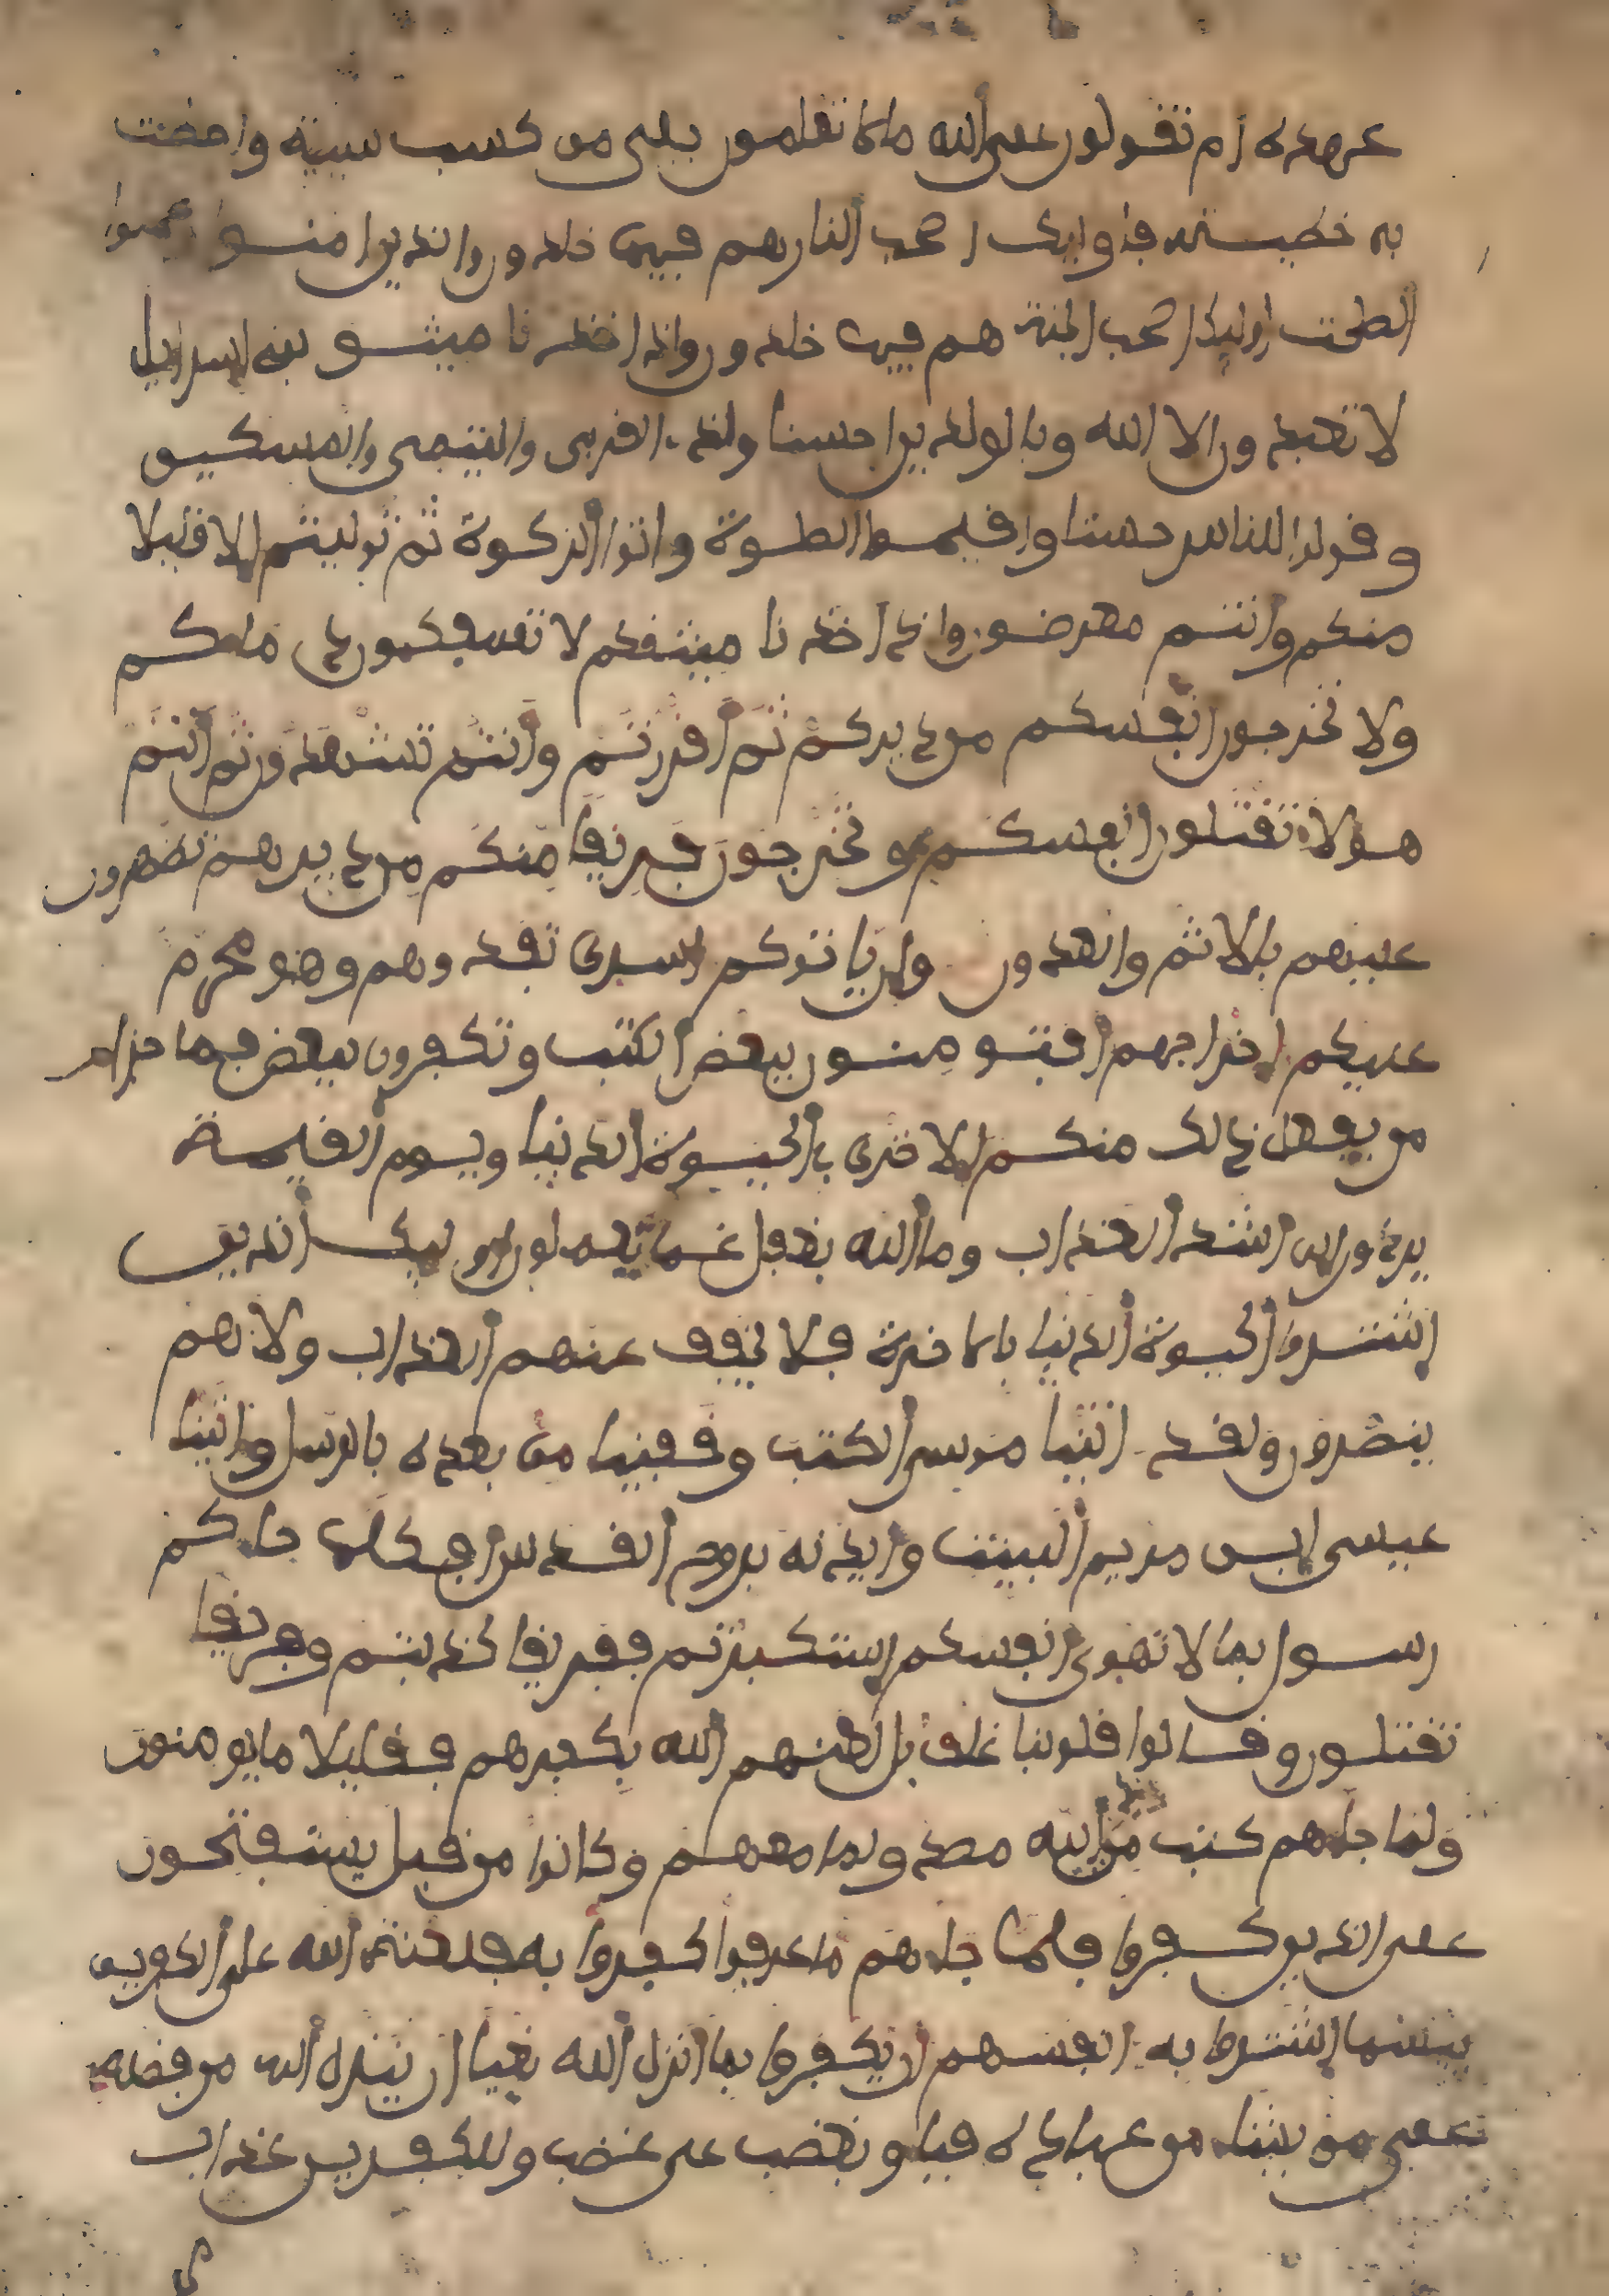 عهده ام تقولون على الله ما لا تعلمون بلى من كسب سيية واحطت
به خطيـته فاوليك اصحب النار هم فيها خلدون والذين امنوا وعملوا
الصلحت اوليك اصحب الجنة هم فيها خلدون واذ اخذنا ميثـق بني اسراءيل
لا تعبدون الا الله وبالولدين احسنا وذي القربى واليتمى والمسكين
وقولوا للناس حسنا واقيموا الصلوة واتوا الزكوة ثم توليتم الا قليلا
منكم وانتم معرضون واذ اخذنا ميثقكم لا تسفكون دماكم
ولا تخرجون انفسكم من ديركم ثم اقررتم وانتم تشهدون ثم انتم
هولاء تقتلون انفسكم وتخرجون فريقا منكم من ديرهم تظهرون
عليهم بالاثم والعدون وان ياتوكم اسرى تفدوهم وهو محرم
عليكم اخراجهم افتومنون ببعض الكتب وتكفرون ببعض فما جزاء
من يفعل ذالك منكم الا خزي في الحيوة الدنيا ويوم القيمة
يردون الى اشد العذاب وما الله بغفل عما يعملون اوليك الذين
اشتروا الحيوة الدنيا بالاخرة فلا يخفف عنهم العذاب ولا هم
ينصرون ولقد اتينا موسى الكتب وقفينا من بعده بالرسل واتينا
عيسى ابن مريم البينت وايدنه بروح القدس افكلما جاءكم
رسول بما لا تهوى انفسكم استكبرتم ففريقا كذبتم وفريقا
تقتلون وقالوا قلوبنا غلف بل لعنهم الله بكفرهم فقليلا ما يومنون
ولما جاءهم كتب من عند الله مصدق لما معهم وكانوا من قبل يستفتحون
على الذين كفروا فلما جاءهم ما عرفوا كفروا به فلعنة الله على الكفرين
بيسما اشتروا به انفسهم ان يكفروا بما انزل الله بغيا ان ينزل الله من فضله
على من يشاء من عباده فباءو بغضب على غضب وللكفرين عذاب